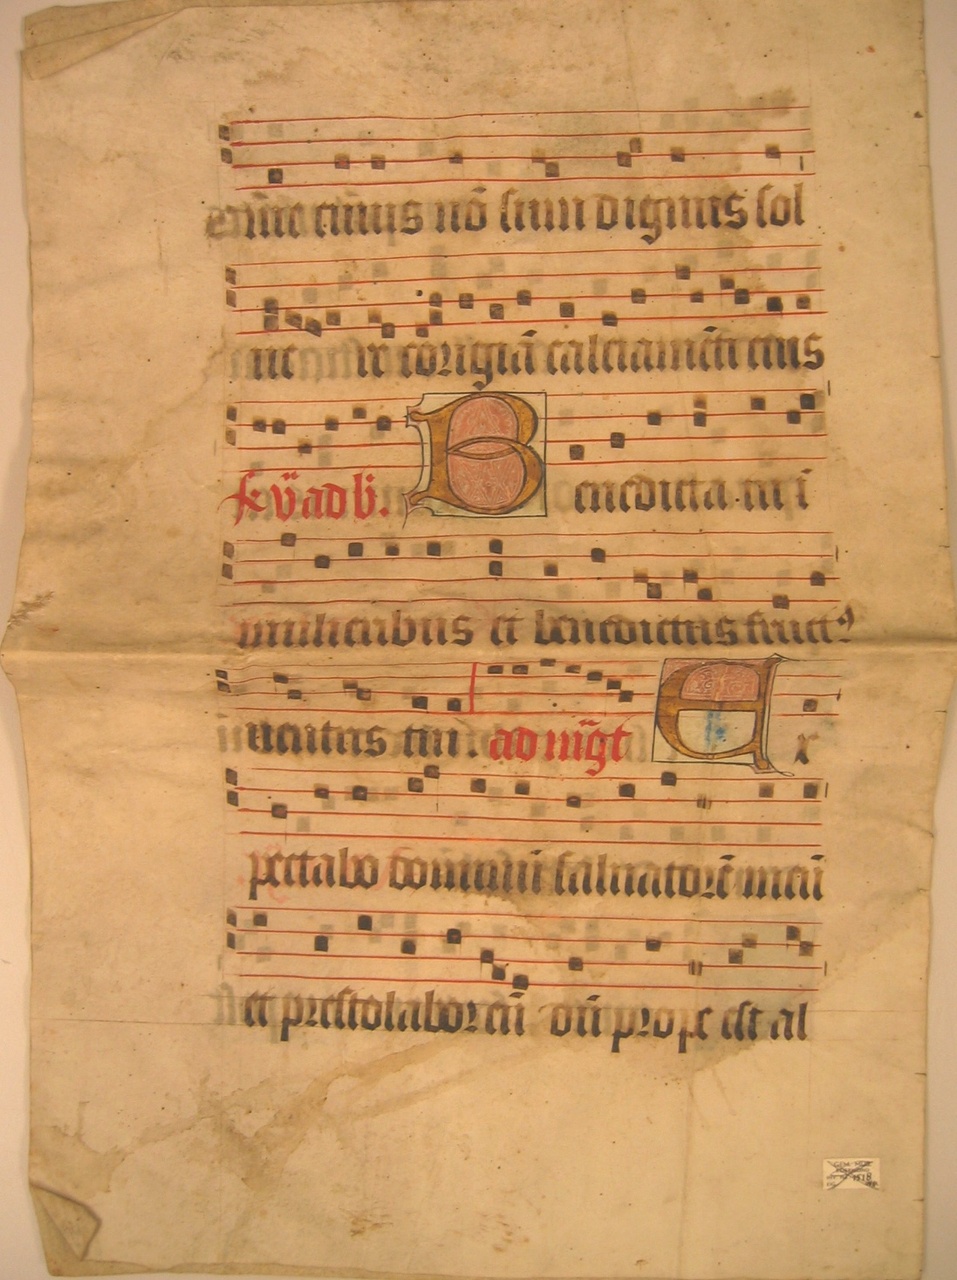 cuius nō sum dignus sol
ue re corrigiā calciamēti eius
B enedicta tu ī
mulieribus et benedictus fructꝰ
uentris tui . ad mag̅t E x
pectabo dominū saluatorē meū
et prestolabor eū dū prope est al